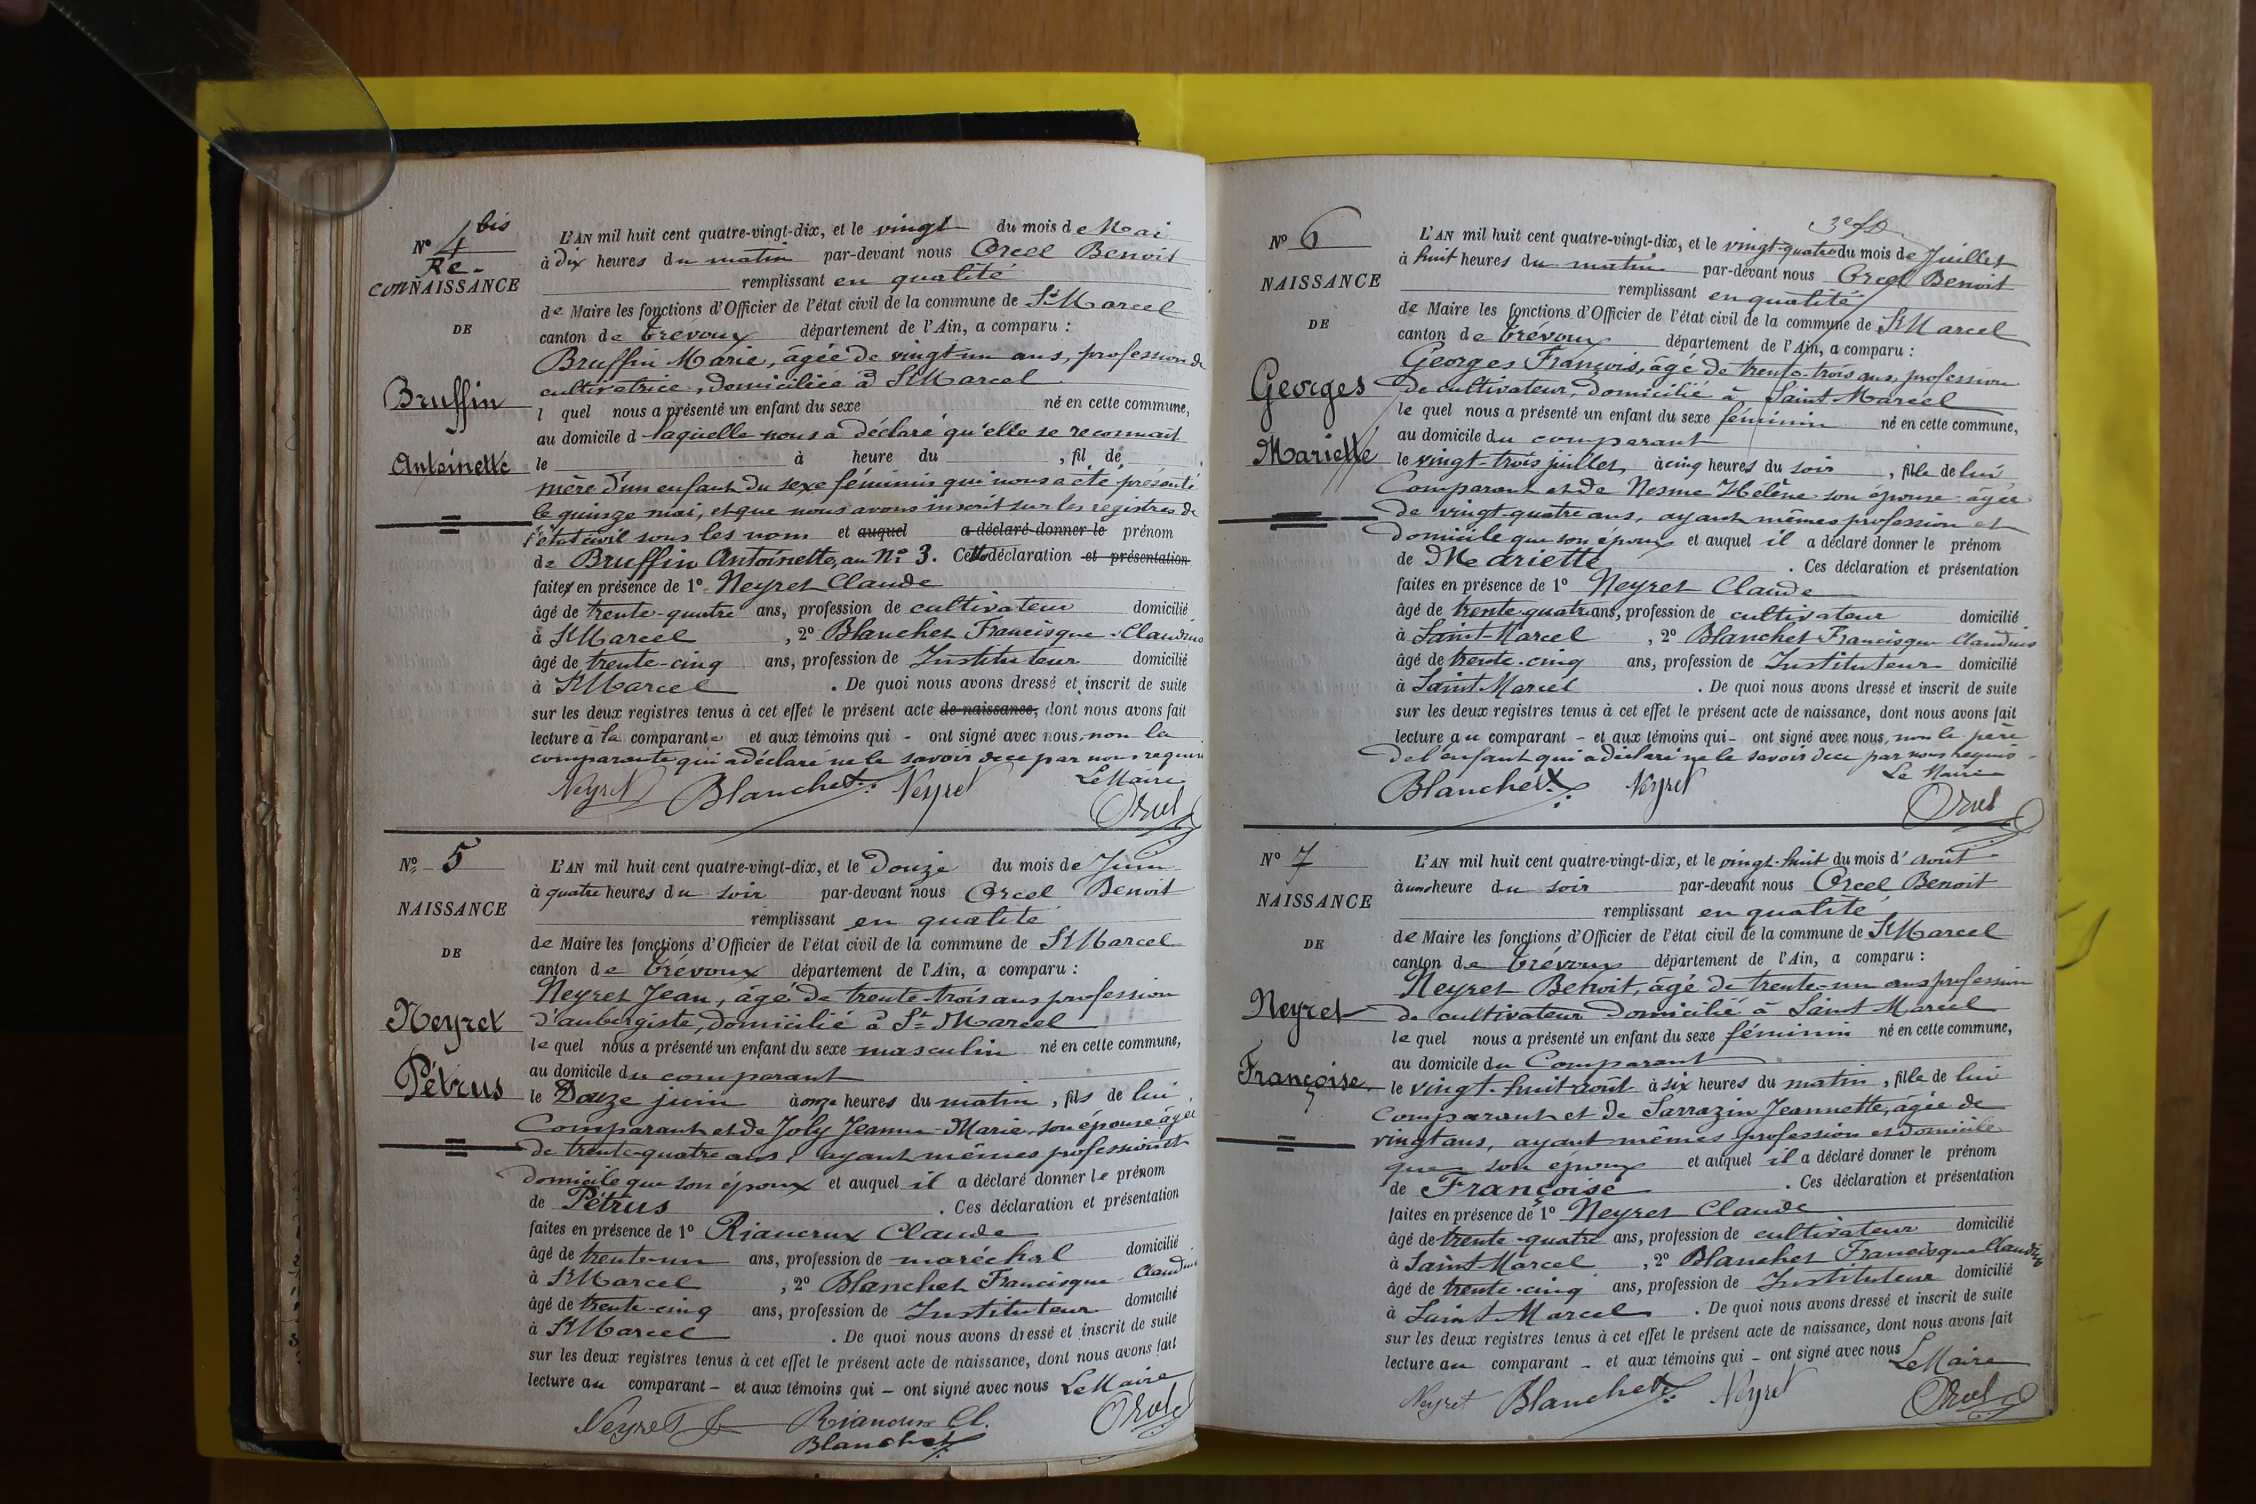 N° 4 bis
Re-
CONNAISSANCE
DE
Bruffin
Antoinette
L'AN mil huit cent quatre-vingt-dix, et le vingt du mois de Mai
à dix heures du matin par-devant nous Orcel Benoit
remplissant en qualité
de Maire les fonctions d'Officier de l'état civil de la commune de St Marcel
canton de Trevoux département de l'Ain, a comparu :
Bruffin Marie, âgée de vingt un ans, profession de
cultivatrice, domiciliée à St Marcel
l quel nous a présenté un enfant du sexe né en cette commune,
au domicile d laquelle nous a déclaré qu'elle se reconnait
le à heure du , fil de
mère d'un enfant du sexe féminin qui nous a été présenté
le quinze mai, et que nous avons inscrit sur les registres de
l'état civil sous les nom et auquel a déclaré donner le prénom
de Bruffin Antoinette, au N° 3. Cette déclaration et présentation
faites en présence de 1° Neyret Claude
âgé de trente-quatre ans, profession de cultivateur domicilié
à St Marcel , 2° Blanchet Francisque-Claudius
âgé de trente-cinq ans, profession de Instituteur domicilié
à St Marcel . De quoi nous avons dressé et inscrit de suite
sur les deux registres tenus à cet effet le présent acte de naissance, dont nous avons fait
lecture à la comparante et aux témoins qui - ont signé avec nous, non la
comparante qui a déclaré ne le savoir de ce par nous requise
Neyret Blanchet Neyret Le Maire
Orcel
N° 5
NAISSANCE
DE
Neyret
Pétrus
L'AN mil huit cent quatre-vingt-dix, et le Douze du mois de Juin
à quatre heures du soir par-devant nous Orcel Benoit
remplissant en qualité
de Maire les fonctions d'Officier de l'état civil de la commune de St Marcel
canton de Trévoux département de l'Ain, a comparu :
Neyret Jean, âgé de trente-trois ans profession
d'aubergiste, domicilié à St Marcel
le quel nous a présenté un enfant du sexe masculin né en cette commune,
au domicile du comparant
le Douze juin à onze heures du matin, fils de lui
Comparant et de Joly Jeanne-Marie, son épouse âgée
de trente-quatre ans, ayant mêmes profession et
domicile que son époux et auquel il a déclaré donner le prénom
de Pétrus . Ces déclaration et présentation
faites en présence de 1° Rianoux Claude
âgé de trente-un ans, profession de maréchal domicilié
à St Marcel , 2° Blanchet Francisque-Claudius
âgé de trente-cinq ans, profession de Instituteur domicilié
à St Marcel . De quoi nous avons dressé et inscrit de suite
sur les deux registres tenus à cet effet le présent acte de naissance, dont nous avons fait
lecture au comparant - et aux témoins qui - ont signé avec nous Le Maire
Neyret J Rianoux Cl. Orcel
Blanchet
N° 6
NAISSANCE
DE
Georges
Mariette
L'AN mil huit cent quatre-vingt-dix, et le vingt-quatre du mois de Juillet
à huit heures du matin par-devant nous Orcel Benoit
remplissant en qualité
de Maire les fonctions d'Officier de l'état civil de la commune de St Marcel
canton de Trévoux département de l'Ain, a comparu :
Georges François, âgé de trente-trois ans, profession
de cultivateur, domicilié à Saint-Marcel
le quel nous a présenté un enfant du sexe féminin né en cette commune,
au domicile du comparant
le vingt-trois juillet, à cinq heures du soir , fille de lui
Comparant et de Nesme Hélène son épouse âgée
de vingt-quatre ans, ayant mêmes profession et
domicile que son époux et auquel il a déclaré donner le prénom
de Mariette . Ces déclaration et présentation
faites en présence de 1° Neyret Claude
âgé de trente-quatre ans, profession de cultivateur domicilié
à Saint-Marcel , 2° Blanchet Francisque Claudius
âgé de trente-cinq ans, profession de Instituteur domicilié
à Saint Marcel . De quoi nous avons dressé et inscrit de suite
sur les deux registres tenus à cet effet le présent acte de naissance, dont nous avons fait
lecture au comparant - et aux témoins qui - ont signé avec nous, non le père
de l'enfant qui a déclaré ne le savoir de ce par nous requis
Le Maire
Blanchet Neyret
Orcel
N° 7
NAISSANCE
DE
Neyret
Françoise
L'AN mil huit cent quatre-vingt-dix, et le vingt-huit du mois d'août
à une heure du soir par-devant nous Orcel Benoit
remplissant en qualité
de Maire les fonctions d'Officier de l'état civil de la commune de St Marcel
canton de Trévoux département de l'Ain, a comparu :
Neyret Benoit, âgé de trente-un ans profession
de cultivateur domicilié à Saint Marcel
le quel nous a présenté un enfant du sexe féminin né en cette commune,
au domicile du Comparant
le vingt-huit août à six heures du matin, fille de lui
Comparant et de Sarrazin Jeannette, âgée de
vingt ans, ayant mêmes profession et domicile
que son époux et auquel il a déclaré donner le prénom
de Françoise . Ces déclaration et présentation
faites en présence de 1° Neyret Claude
âgé de trente-quatre ans, profession de cultivateur domicilié
à Saint Marcel , 2° Blanchet Francisque Claudius
âgé de trente-cinq ans, profession de Instituteur domicilié
à Saint Marcel . De quoi nous avons dressé et inscrit de suite
sur les deux registres tenus à cet effet le présent acte de naissance, dont nous avons fait
lecture au comparant - et aux témoins qui - ont signé avec nous Le Maire
Neyret Blanchet Neyret Orcel